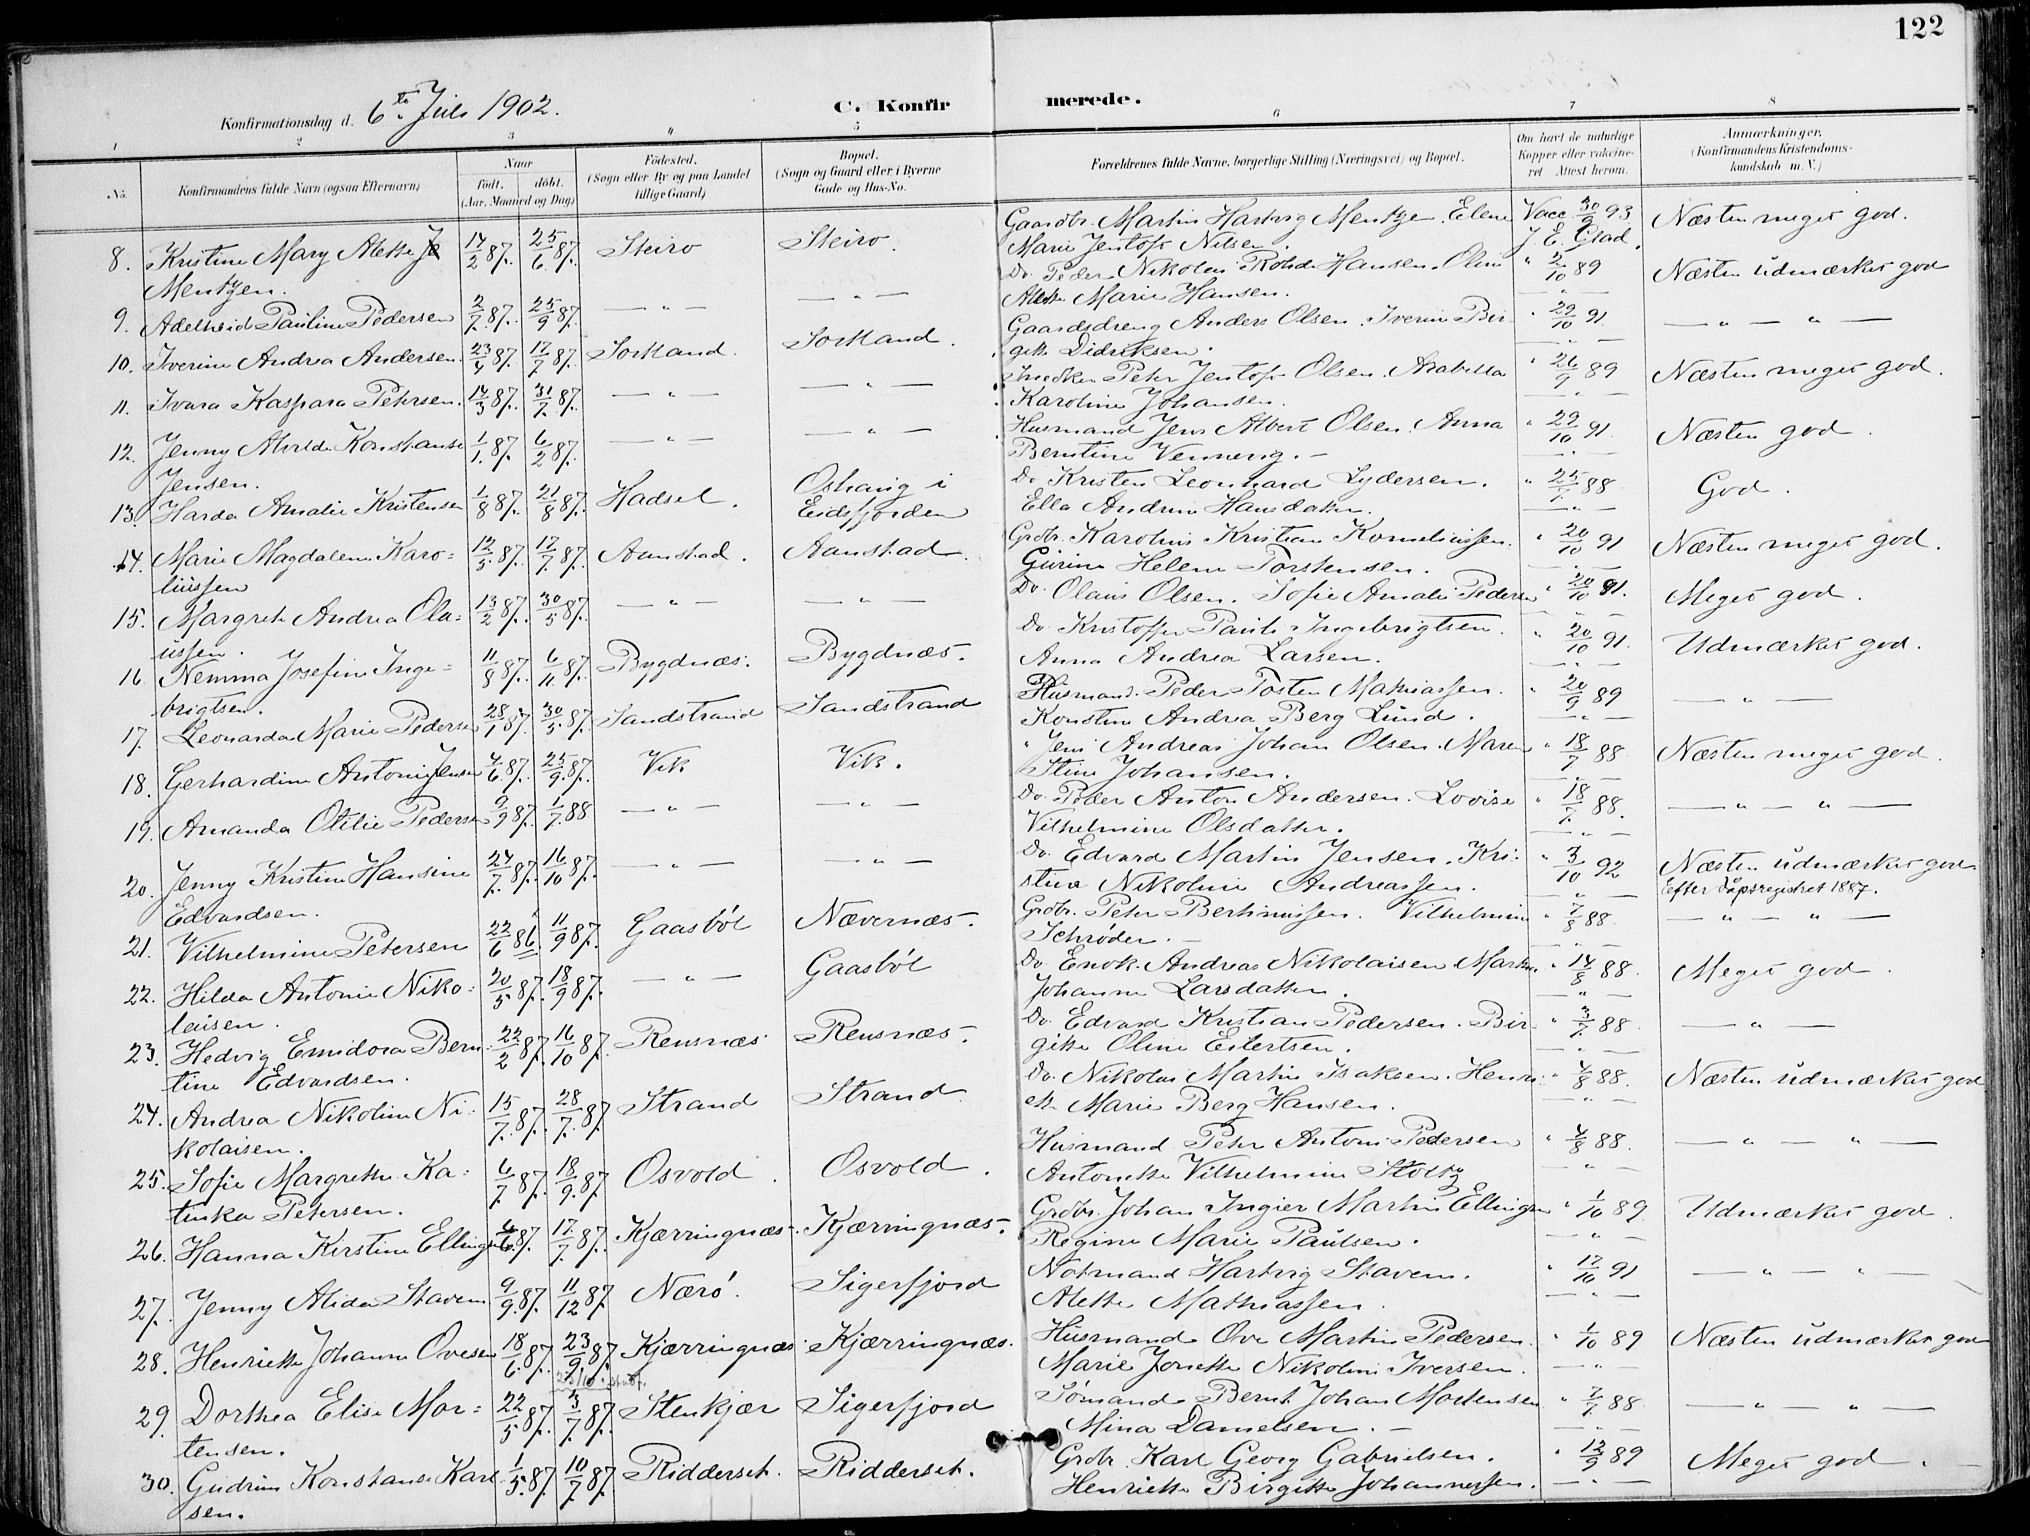 122
Konfirmationsdag d. 6te Juli 1902.
C. Konfirmerede.
1 2 3 4 5 6 7 8
No.
Konfirmandens fulde Navn (ogsaa Efternavn)
Naar
født. døbt.
(Aar, Maaned og Dag)
Fødested.
(Sogn eller By og paa Landet
tillige Gaard)
Bopæl.
(Sogn og Gaard eller i Byerne
Gade og Hus-No.
Forældrenes fulde Navne, borgerlige Stilling (Næringsvei) og Bopæl.
Om havt de naturlige
Kopper eller vakcine-
ret Attest herom.
Anmærkninger.
(Konfirmandens Kristendoms-
kundskab m. V.)
8. Kristine Mary Alette 14/2 87. 25/6 87. Steiro Steiro. Gaardbr. Martin Hartvig Mentzen. Elene Vacc 30/9 93 Næsten meget god.
Mentzen. Marie Jentoft Nilsen. J. E. Glad.
9. Adelheid Pauline Pedersen 2/7 87. 25/9 87. — " — — " — Do. Peder Nikolai Rohde Hansen. Oline " 2/10 89 Næsten udmærket god
Alette Marie Hansen. — " —
10. Iverine Andrea Andersen 23/4 87. 17/7 87. Sortland. Sortland. Gaardsdreng Anders Olsen. Iverine Bir- " 29/10 91 — " — " —
gitte Didriksen. — " —
11. Ivara Kaspara Petersen. 14/3 87. 31/7 87. — " — — " — Snedker Peter Jentoft Olsen. Arabella " 26/9 89 Næsten meget god.
Karoline Johansen. — " —
12. Jenny Alvilde Konstanse 1/1 87. 6/2 87. — " — — " — Husmand Jens Albert Olsen. Anna " 29/10 91 Næsten god.
Jensen. Berntine Venneng. — — " —
13. Harda Amalie Kristensen 1/8 87. 21/8 87. Hadsel. Oshaug i Do Kristen Leonhard Lydersen. " 25/7 88 God.
Eidsfjorden Ella Andrine Hansdatter. — " —
14. Marie Magdalene Karo= 12/5 87. 17/7 87. Aanstad. Aanstad. Grdbr. Karolius Kristian Korneliussen. " 20/10 91 Næsten meget god.
liussen Gurine Helene Torstensen. — " —
15. Margrete Andrea Ola= 13/2 87. 30/5 87. — " — — " — Do. Olaus Olsen. Sofie Amalie Pedersen " 20/10 91. Meget god.
ussen. — " —
16. Nemma Josefine Inge= 11/8 87. 6/11 87. Bygdnæs. Bygdnæs. Do. Kristoffer Pauli Ingebrigtsen. " 20/10 91. Udmærket god.
brigtsen. Anna Andrea Larsen. — " —
17. Leonarda Marie Pedersen 28/1 87. 30/5 87. Sandstrand Sandstrand Husmand. Peder Tosten Mathiassen. " 20/9 89 — " —
Konstine Andrea Berg Lund. — " —
18. Gerhardine Antonie Jensen 4/6 87. 25/9 87. Vik Vik. " Jens Andreas Johan Olsen. Maren " 18/7 88 Næsten meget god.
Stine Johansen. — " —
19. Amanda Otilie Pedersen 9/9 87. 1/7 88 — " — — " — Do. Peder Anton Andersen. Lovise " 18/7 88. — " — " —
Vilhelmine Olsdatter. — " —
20. Jenny Kristine Hansine 24/7 87. 16/10 87. — " — — " — Do. Edvard Martin Jensen. Kri- " 3/10 92 Næsten udmærket god
Edvardsen. stine Nikoline Andreassen. — " — Efter dåpsregistret 1887.
21. Vilhelmine Petersen 22/6 86. 11/9 87. Gaasbøl Nævernæs. Grdbr. Peter Bertinussen. Vilhelmine " 7/8 88. — " — " —
Schrøder. — — " —
22. Hilda Antonie Niko- 20/5 87. 18/9 87. — " — Gaasbøl Do. Enok Andreas Nikolaisen. Martha " 14/8 88. Meget god.
laisen. Johanne Larsdatter. — " —
23. Hedvig Emidora Bern- 22/2 87. 16/10 87. Rensnæs Rensnæs. Do. Edvard Kristian Pedersen. Bir- " 3/7 88 — " —
tine Edvardsen. gitte Oline Eilertsen. — " —
24. Andrea Nikoline Ni- 15/7. 87. 28/7. 87 Strand Strand. Do. Nikolai Martin Isaksen. Henri- " 4/8 88. Næsten udmærket god
kolaisen. ette Marie Berg Hansen. — " —
25. Sofie Margrethe Ka- 6/7 87. 18/9 87. Osvold. Osvold. Husmand Peter Antoni Pedersen " 4/8 88. — " — " —
tinka Petersen. Antonette Vilhelmine Stoltz — " —
26. Hanna Kirstine Ellingsen 4/6 87. 17/7 87. Kjærringnæs. Kjærringnæs. Grdbr. Johan Ingier Martin Ellingsen " 1/10 89. Udmærket god.
Regine Marie Paulsen. — " —
27. Jenny Alida Stavem 9/9 87. 11/12 87. Nærø. Sigerfjord Notmand Hartvig Stavem. " 17/10 91 — " — " —
Alette Mathiassen. — " —
28. Henriette Johanne Ovesen 18/6 87. 23/9 87. Kjærringnæs Kjærringnæs. Husmand Ove Martin Pedersen. " 1/10 89 Næsten udmærket god
Marie Jonette Nikoline Iversen. — " —
29. Dorthea Elise Mor= 22/5 87. 3/7 87. Stenkjær Sigerfjord Sømand Bernt Johan Mortensen " 7/7 88 — " — " —
tensen. Mina Danielsen. — — " —
30. Gudrun Konstanse Karl- 1/5. 87. 10/7 87. Ridderset. Ridderset. Grdbr. Karl Georg Gabrielsen. " 12/9 89 Meget god.
sen. Henriette Birgitte Johannessen. — " —